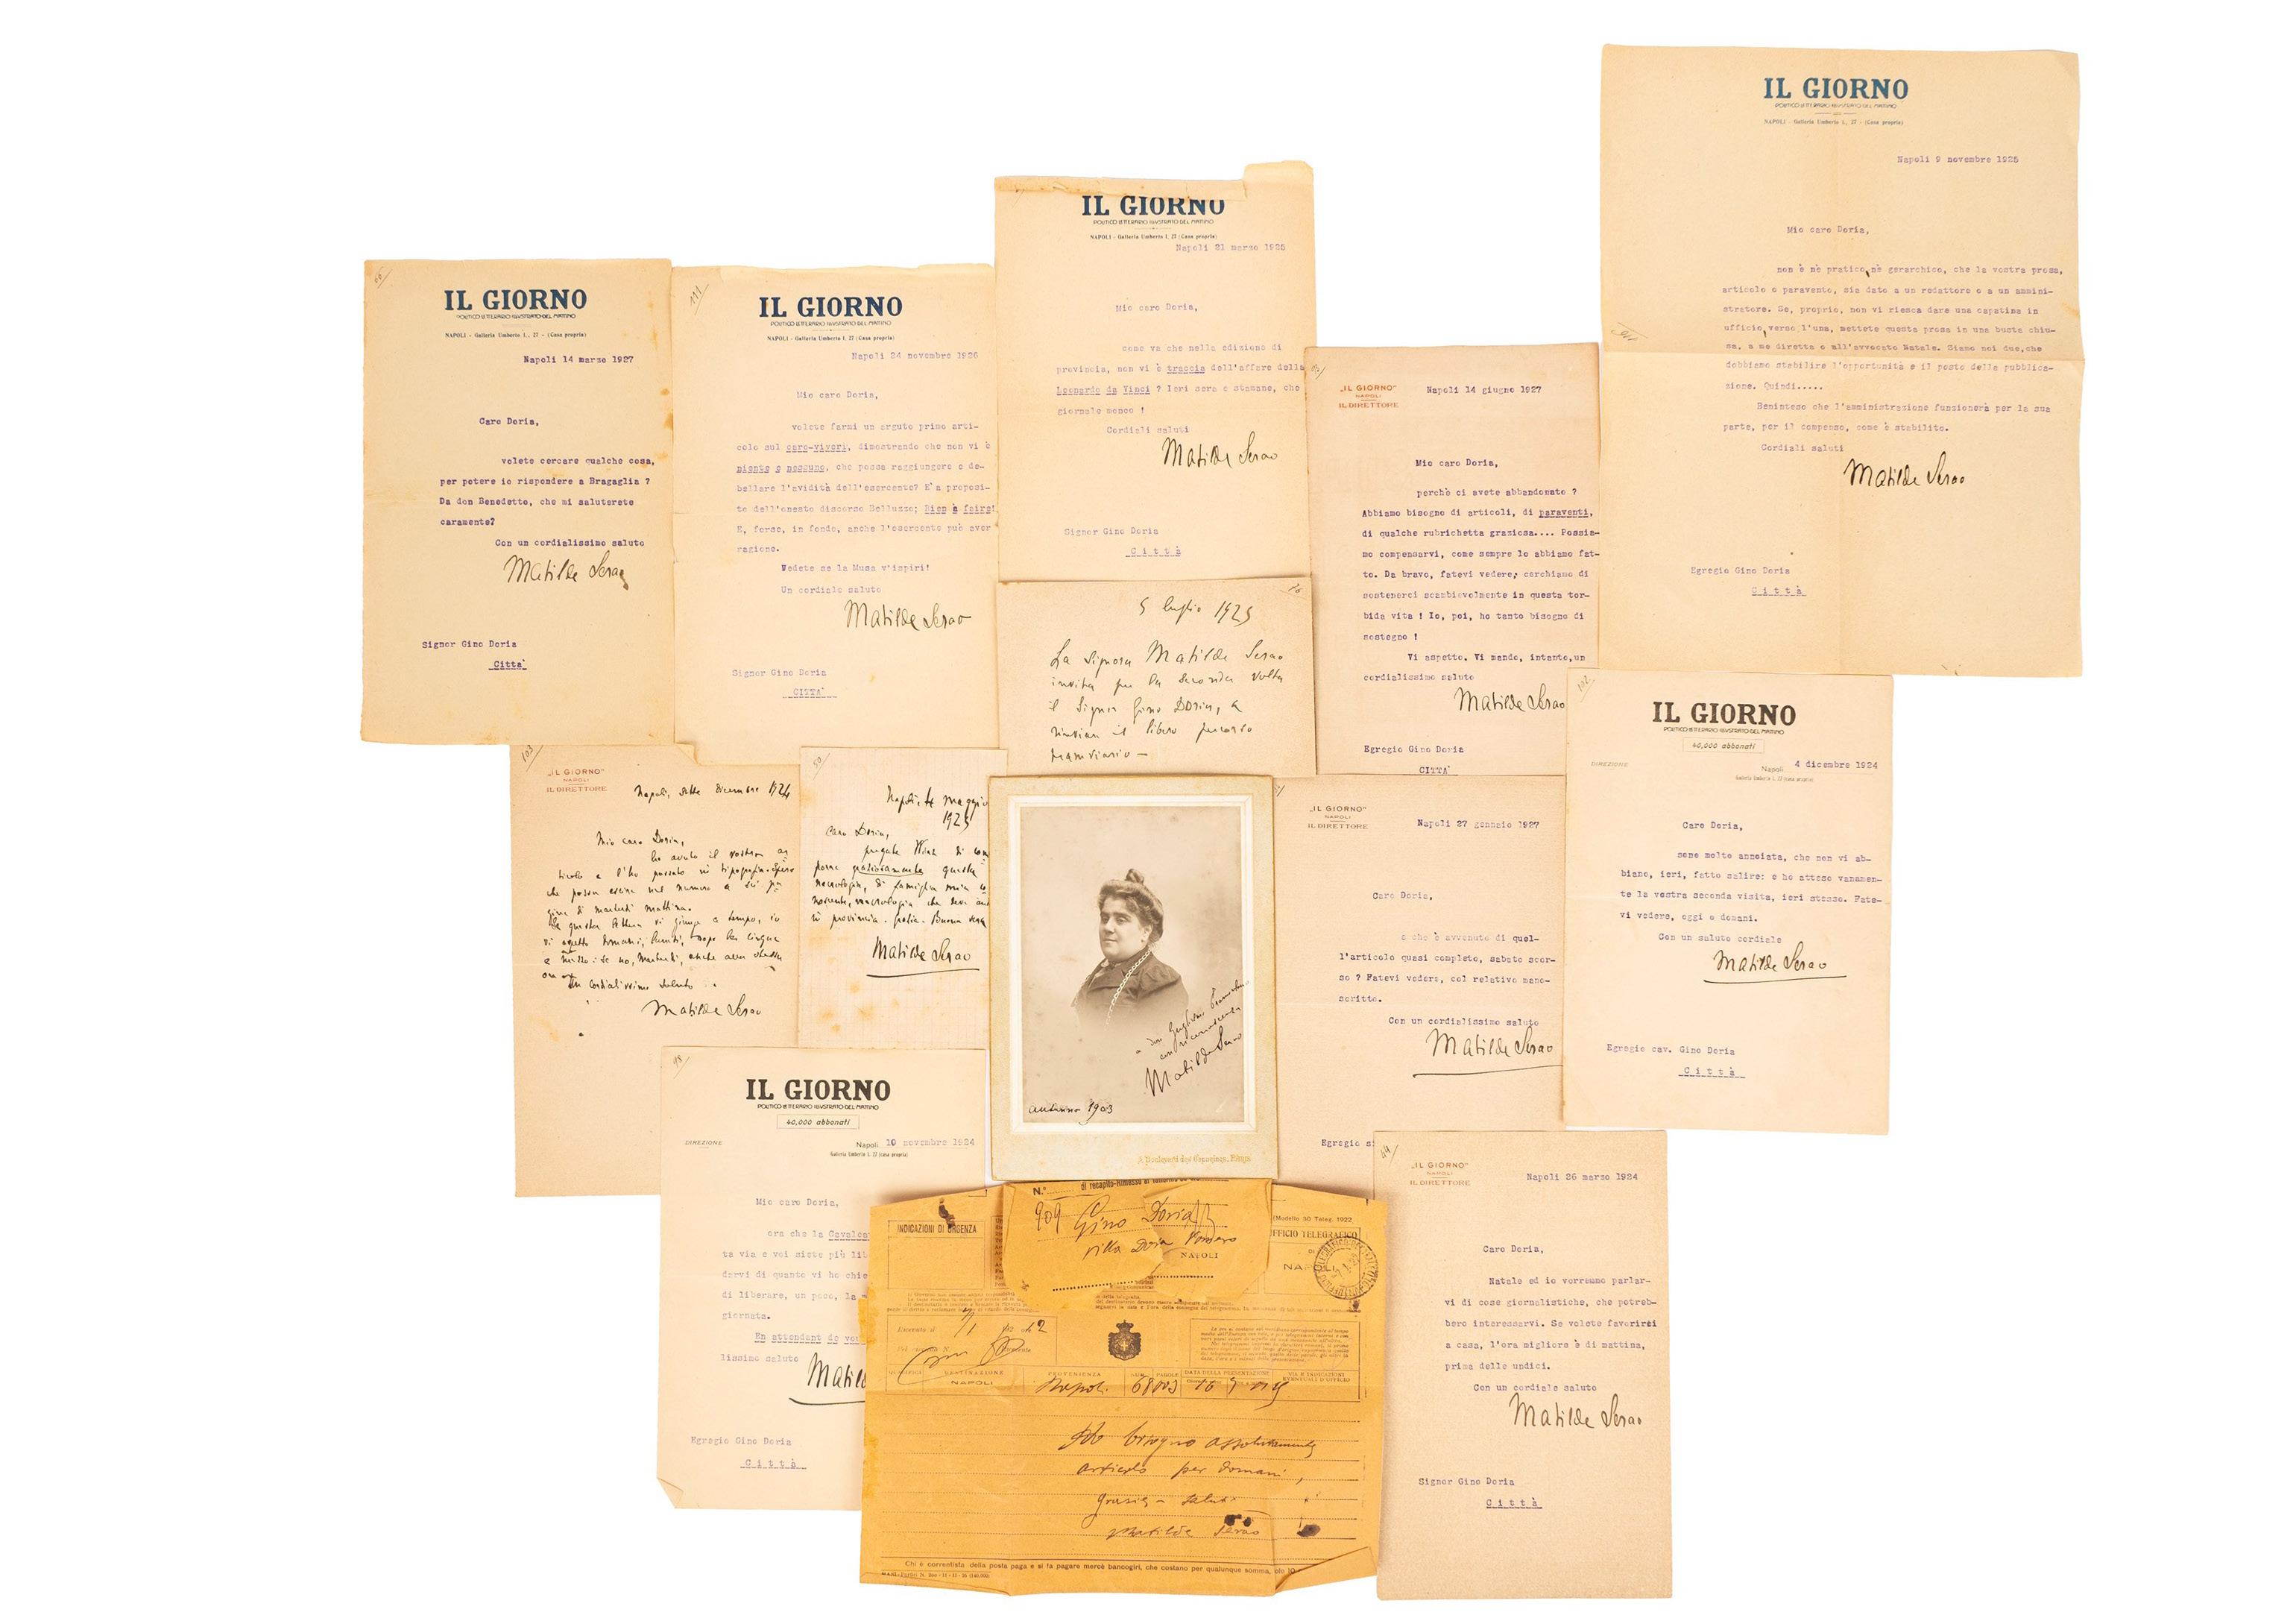 66
IL GIORNO
POLITICO LETTERARIO ILLUSTRATO DEL MATTINO
NAPOLI - Galleria Umberto I., 27 - (Casa propria)
Napoli 14 marzo 1927
Caro Doria,
volete cercare qualche cosa,
per potere io rispondere a Bragaglia ?
Da don Benedetto, che mi saluterete
caramente?
Con un cordialissimo saluto
Matilde Serao
Signor Gino Doria
Citta'
111
IL GIORNO
POLITICO LETTERARIO ILLUSTRATO DEL MATTINO
NAPOLI - Galleria Umberto I. 27 (Casa propria)
Napoli 24 novembre 1926
Mio caro Doria,
volete farmi un arguto primo arti-
colo sul caro-viveri, dimostrando che non vi è
niente e nessuno, che possa raggiungere e de-
bellare l'avidità dell'esercente? E' a proposi-
to dell'onesto discorso Belluzzo; Rien à faire!
E, forse, in fondo, anche l'esercente può aver
ragione.
Vedete se la Musa v'ispiri!
Un cordiale saluto
Matilde Serao
Signor Gino Doria
CITTA'
IL GIORNO
POLITICO LETTERARIO ILLUSTRATO DEL MATTINO
NAPOLI - Galleria Umberto I, 27 (Casa propria)
Napoli 21 marzo 1925
Mio caro Doria,
come va che nella edizione di
provincia, non vi è traccia dell'affare della
Leonardo da Vinci ? Ieri sera e stamane, che
giornale monco !
Cordiali saluti
Matilde Serao
Signor Gino Doria
Città
5 luglio 1925
La Signora Matilde Serao
invita per la seconda volta
il Signor Gino Doria, a
rinviare il libero percorso
tramviario —
"IL GIORNO"
NAPOLI
IL DIRETTORE
Napoli 14 giugno 1927
Mio caro Doria,
perchè ci avete abbandonato ?
Abbiamo bisogno di articoli, di paraventi,
di qualche rubrichetta graziosa.... Possia-
mo compensarvi, come sempre lo abbiamo fat-
to. Da bravo, fatevi vedere; cerchiamo di
sostenerci scambievolmente in questa tor-
bida vita ! Io, poi, ho tanto bisogno di
sostegno !
Vi aspetto. Vi mando, intanto,un
cordialissimo saluto
Matilde Serao
Egregio Gino Doria
CITTA'
IL GIORNO
POLITICO LETTERARIO ILLUSTRATO DEL MATTINO
NAPOLI - Galleria Umberto I., 27 - (Casa propria)
Napoli 9 novembre 1925
Mio caro Doria,
non è nè pratico,nè gerarchico, che la vostra prosa,
articolo o paravento, sia dato a un redattore o a un ammini-
stratore. Se, proprio, non vi riesca dare una capatina in
ufficio,verso l'una, mettete questa prosa in una busta chiu-
sa, a me diretta o all'avvocato Natale. Siamo noi due,che
dobbiamo stabilire l'opportunità e il posto della pubblica-
zione. Quindi.....
Beninteso che l'amministrazione funzionerà per la sua
parte, per il compenso, come è stabilito.
Cordiali saluti
Matilde Serao
Egregio Gino Doria
Città
103
"IL GIORNO"
NAPOLI
IL DIRETTORE
Napoli, sette dicembre 1924
Mio caro Doria,
ho avuto il vostro ar
ticolo e l'ho passato in tipografia. Spero
che possa escire nel numero a sei pa
gine di martedì mattina.
Se questa lettera vi giunge a tempo, io
vi aspetto domani, lunedì, dopo le cinque
e mezzo: se no, martedì, anche alla stessa
ora.
Un cordialissimo saluto
Matilde Serao
50
Napoli, maggio
1925
Caro Doria,
pregate di com
porre graziosamente questa
necrologia, di famiglia mia co
noscente, necrologia che deve
in provincia. Grazie. Buona sera
Matilde Serao
a don
con riconoscenza
Matilde Serao
autunno 1903
"IL GIORNO"
NAPOLI
IL DIRETTORE
Napoli 27 gennaio 1927
Caro Doria,
e che è avvenuto di quel-
l'articolo quasi completo, sabato scor-
so ? Fatevi vedere, col relativo mano-
scritto.
Con un cordialissimo saluto
Matilde Serao
Egregio
102
IL GIORNO
POLITICO LETTERARIO ILLUSTRATO DEL MATTINO
40,000 abbonati
DIREZIONE
Napoli, 4 dicembre 1924
Galleria Umberto I, 27 (casa propria)
Caro Doria,
sono molto annoiata, che non vi ab-
biano, ieri, fatto salire: e ho atteso vanamen-
te la vostra seconda visita, ieri stesso. Fate-
vi vedere, oggi o domani.
Con un saluto cordiale
Matilde Serao
Egregio cav. Gino Doria
Città
98
IL GIORNO
POLITICO LETTERARIO ILLUSTRATO DEL MATTINO
40,000 abbonati
DIREZIONE
Napoli, 10 novembre 1924
Galleria Umberto I, 27 (casa propria)
Mio caro Doria,
ora che la
ta via e voi siete più
darvi di quanto vi ho
di liberare, un poco, la
giornata.
En attendant de
lissimo saluto
Egregio Gino Doria
Città
N.°
909 Gino Doria
Villa Doria Vomero
NAPOLI
INDICAZIONI DI URGENZA
(Modello 30 Teleg. 1922
UFFICIO TELEGRAFICO
DI
NAPOLI
DESTINAZIONE
NAPOLI
PROVENIENZA
Napoli
PAROLE
DATA DELLA PRESENTAZIONE
VIA E INDICAZIONI
EVENTUALI D'UFFICIO
Ho bisogno assolutamente
articolo per domani,
grazie - saluti
Matilde Serao
Chi è correntista della posta paga e si fa pagare mercè bancogiri, che costano per qualunque somma, solo 10
44
"IL GIORNO"
NAPOLI
IL DIRETTORE
Napoli 26 marzo 1924
Caro Doria,
Natale ed io vorremmo parlar-
vi di cose giornalistiche, che potreb-
bero interessarvi. Se volete favorirci
a casa, l'ora migliore è di mattina,
prima delle undici.
Con un cordiale saluto
Matilde Serao
Signor Gino Doria
Città